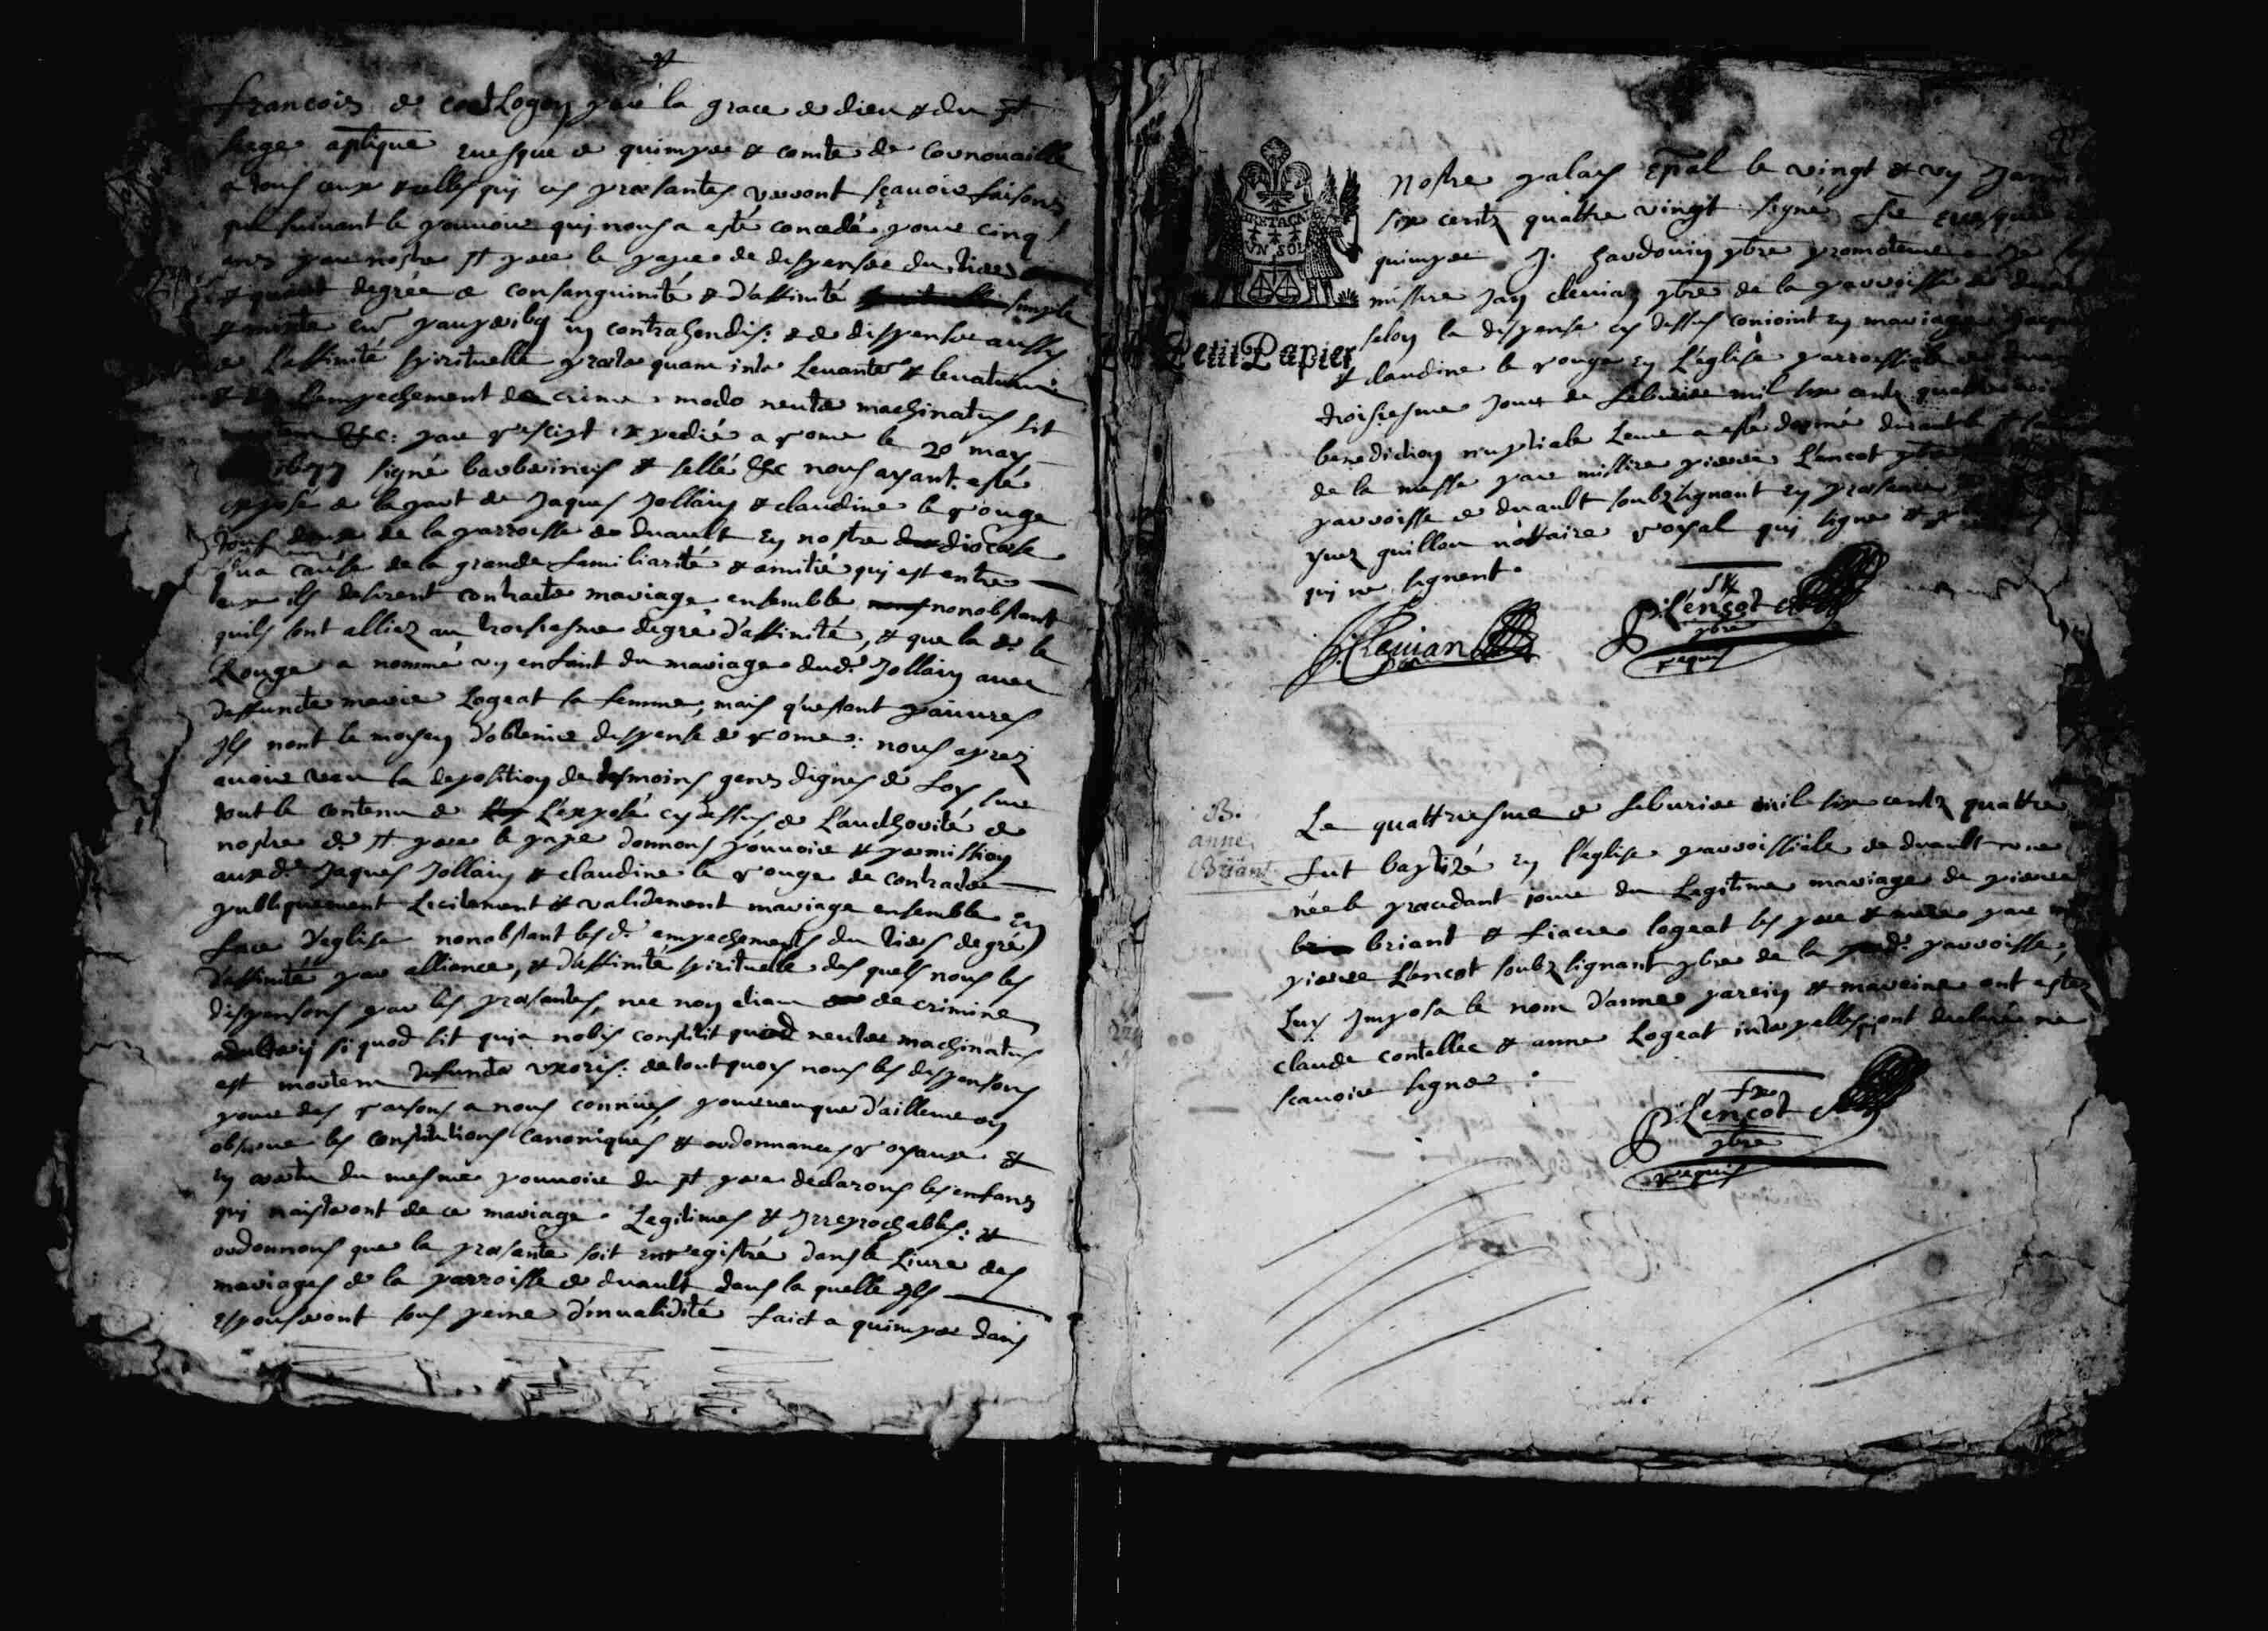 francois de coetLogon par la grace de dieu & du st
siege aptique evesque de quimper & comte de Cornouaille
a tous ceux & celles qui ces presantes verront sçavoir faisons
que suivant le pouvoir qui nous a esté concedé pour cinq
ans par nostre st pere le pape de dispenser du tiers
& quart degrée de consanguinité & d'affinité simple
& mixte cum pauperibus in contrahendis: & de dispenser aussy
de L'affinité spirituelle praeter quam inter Levantem & levatum
& de l'empechement de crime modo neuter machinatus sit
&c: par rescript expedié a rome le 20 may
1677 signé barberinus & sellé &c nous ayant esté
exposé de la part de Jaques Jollain & claudine le rouge
tous deux de la parroisse de duault en nostre diocese
qu'a cause de la grande familiarité & amitié qui est entre
eux ils desirent contracter mariage ensemble nonobstant
quils sont alliez au troisiesme degré d'affinité, & que la de le
Rouge a nommé un enfant du mariage dud. Jollain avec
deffuncte marie Logeat sa femme, mais qu'estant pauvres
Ils nont le moyen d'obtenir dispense de rome: nous aprez
avoir veu la deposition de tesmoins gens dignes de foy, sur
tout le contenu de L'exposé cy dessus de L'authorité de
nostre d. st pere le pape donnons pouvoir & permission
auxd. Jaques Jollain & claudine le rouge de contracter
publiquement Licitement & validement mariage ensemble en
face d'eglise nonobstant lesd. empechements du tiers degré
d'affinité par alliance, & d'affinité spirituelle des quels nous les
dispensons par les presantes, nec non etiam de crimine
adulterij si quod sit quia nobis constitit quod neuter machinatus
est mortem defunctae uxoris: de tout quoy nous les dispensons
pour des raisons a nous connues, pourveu que d'ailleurs on
observe les constitutions canoniques, & ordonnances royaux &
en vertu du mesme pouvoir du st pere declarons les enfans
qui naisteront de ce mariage Legitimes & Irreprochables: &
ordonnons que la presante soit enregistré dans le Livre des
mariages de la parroisse de duault dans la quelle Ils
espouseront sous peine d'invalidité faict a quimper dans
BRETAGNE
UN SOL
Petit Papier
Nostre palais Epal le vingt & un Jan
six centz quattre vingt signé fr Evesque
quimper J. hardouin pbre promoteur
missire Jan clevian pbre de la parroisse de
selon la dispense cy dessus conioint en mariage
& claudine le rouge en L'eglise parroissiale
troisiesme Jour de feburier mil six centz quattre
benediction nuptiale Leur a esté donné durant le
de la messe par missire pierre L'encot pbre
parroisse de duault soubzsignant en presence
yves guillou nottaire royal qui signe &
qui ne signent.
J: Clevian
P: L'encot
pbre
requis
B.
anne
Briant
Le quattriesme de feburier mil six centz quattre
fut baptizé en l'eglise parroissiale de duault une
née le precedant jour du Legitime mariage de pierre
briant & fiacre logeat ses pere & mere par
pierre L'encot soubzsignant pbre de la d. parroisse,
Luy Imposa le nom d'anne parein & mareine ont estez
claude contellec & anne Logeat interpellez ont declaré ne
scavoir signer :
P: L'encot
pbre
requis